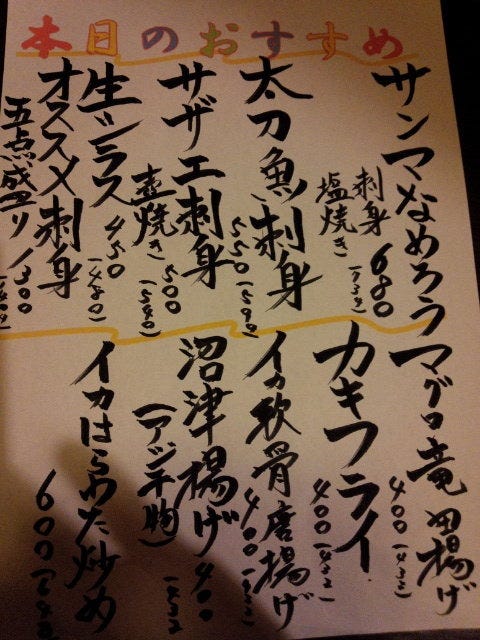 本日のおすすめ
サンマなめろう
刺身
塩焼き
680
太刀魚刺身
550
サザエ刺身
壺焼き
500
(540)
生シラス
450
オススメ刺身
五点盛り1300
マグロ竜田揚げ
400
(432)
カキフライ
400
(432)
イカ軟骨唐揚げ
400
沼津揚げ400
(アジ干物)
(432
イカはらわた炒め
600